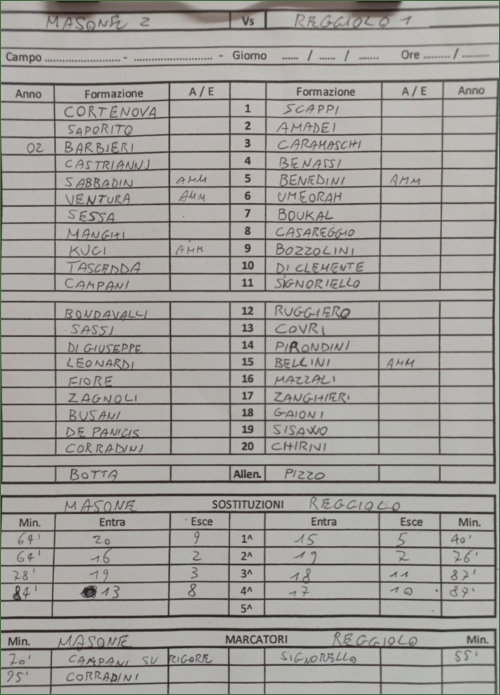 MASONE 2 Vs REGGIOLO 1
Campo ...................... - ...................... - Giorno ...... / ...... / ...... Ore ........ / ........
Anno Formazione A / E Formazione A / E Anno
CORTENOVA 1 SCAPPI
SAPORITO 2 AMADEI
02 BARBIERI 3 CARAMASCHI
CASTRIANNI 4 BENASSI
SABBADIN AMM 5 BENEDINI AMM
VENTURA AMM 6 UMEORAH
SESSA 7 BOUKAL
MANGHI 8 CASAREGGIO
KUCI AMM 9 BOZZOLINI
TASCEDDA 10 DI CLEMENTE
CAMPANI 11 SIGNORIELLO
BONDAVALLI 12 RUGGIERO
SASSI 13 COVRI
DI GIUSEPPE 14 PIRONDINI
LEONARDI 15 BELLINI AMM
FIORE 16 MAZZALI
ZAGNOLI 17 ZANGHIERI
BUSANI 18 GAIONI
DE PANICIS 19
CORRADINI 20 CHIRINI
BOTTA Allen. PIZZO
MASONE SOSTITUZIONI REGGIOLO
Min. Entra Esce Entra Esce Min.
64' 20 9 1^ 15 5 40'
64' 16 2 2^ 19 7 76'
78' 19 3 3^ 18 11 87'
84' 13 8 4^ 17 10 87'
5^
Min. MASONE MARCATORI REGGIOLO Min.
20' CAMPANI SU RIGORE SIGNORELLO 55'
95' CORRADINI